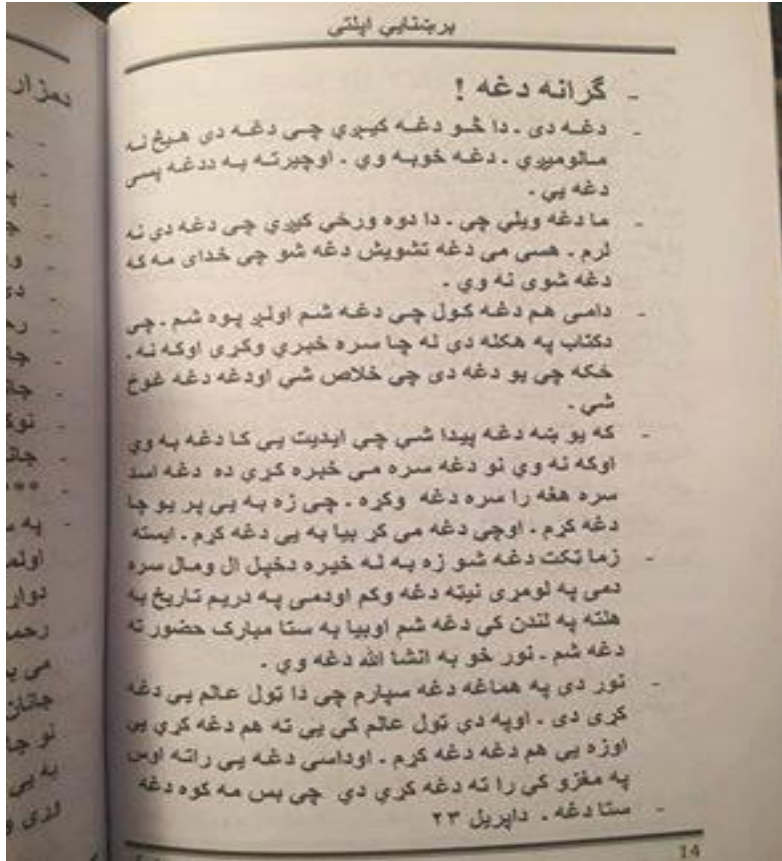 برېښنايي اپلتې
- ګرانه دغه !
- دغه دی . دا څو دغه کيږي چې دغه دی هيڅ نه
مالوميږي . دغه خوبه وي . اوچيرته به ددغه پسې
دغه يي .
- ما دغه ويلي چې . دا دوه ورځې کيږي چې دغه دې نه
لرم . هسې مې دغه تشويش دغه شو چې خدای مه که
دغه شوی نه وي .
- دامې هم دغه کول چې دغه شم اولږ پوه شم . چې
دکتاب په هکله دې له چا سره خبرې وکړې اوکه نه .
ځکه چې يو دغه دی چې خلاص شي اودغه دغه غوڅ
شي .
- که يو ښه دغه پيدا شي چې ايديت يې کا دغه به وي
اوکه نه وي نو دغه سره مې خبره کړې ده دغه اسد
سره هغه را سره دغه وکړه . چې زه به يې پر يو چا
دغه کړم . اوچې دغه مې کړ بيا به يې دغه کړم . ايسته
- زما ټکټ دغه شو زه به له خيره دخپل ال ومال سره
دمې په لومړۍ نيټه دغه وکم اودمې په دريم تاريخ به
هلته په لندن کې دغه شم اوبيا به ستا مبارک حضور ته
دغه شم . نور خو به انشا الله دغه وي .
- نور دې په هماغه دغه سپارم چې دا ټول عالم يې دغه
کړی دی . اوپه دې ټول عالم کې يې ته هم دغه کړی يې
اوزه يې هم دغه دغه کړم . اوداسې دغه يې راته اوس
په مغزو کې را ته دغه کړي دي چې بس مه کوه دغه
- ستا دغه . داپريل ۲۳
14
دمزار